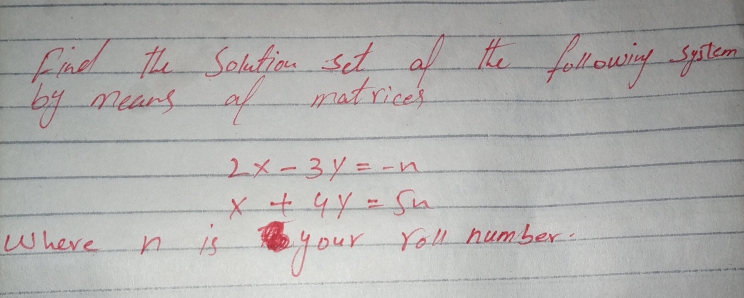 Find the Solution set of the following system
by means of matrices
2x - 3y = -n
x + 4y = 5n
Where n is your roll number.